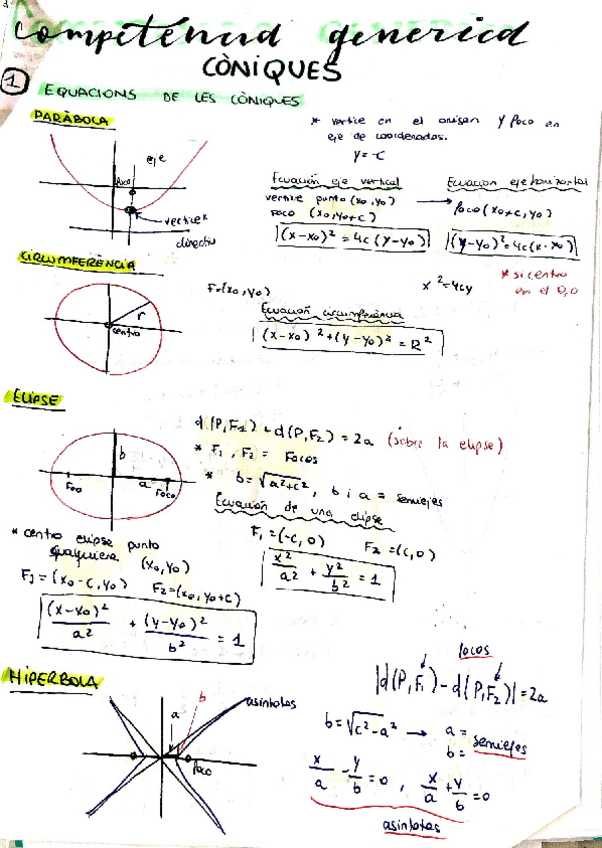 competència generica
CÒNIQUES
1 EQUACIONS DE LES CÒNIQUES
PARÀBOLA
* vertice en el origen y foco en
eje de coordenadas.
y=-c
eje
foco
F
vertice*
directriz
Ecuación eje vertical
vertice punto (x₀,y₀)
foco (x₀,y₀+c)
(x-x₀)² = 4c (y-y₀)
Ecuacion eje horizontal
foco (x₀+c, y₀)
(y-y₀)² = 4c (x-x₀)
x² = 4cy
* si centro
en el 0,0
CIRCUMFERÈNCIA
r
centro
F=(x₀,y₀)
Ecuación circumferència
(x-x₀)² + (y-y₀)² = R²
ELIPSE
b
a
Foco
Foco
d(P,F1) + d(P,F2) = 2a (sobre la elipse)
* F1, F2 = Focos
* b=√a²+c², b i a = semiejes
Ecuación de una elipse
F1=(-c,0) F2=(c,0)
x²/a² + y²/b² = 1
* centro elipse punto
qualquiera (x₀,y₀)
F1=(x₀-c,y₀) F2=(x₀,y₀+c)
(x-x₀)²/a² + (y-y₀)²/b² = 1
HIPERBOLA
a
b
asintotas
foco
focos
|d(P,F1) - d(P,F2)| = 2a
b=√c²-a² → a =
b = semiejes
x/a - y/b = 0, x/a + y/b = 0
asintotas